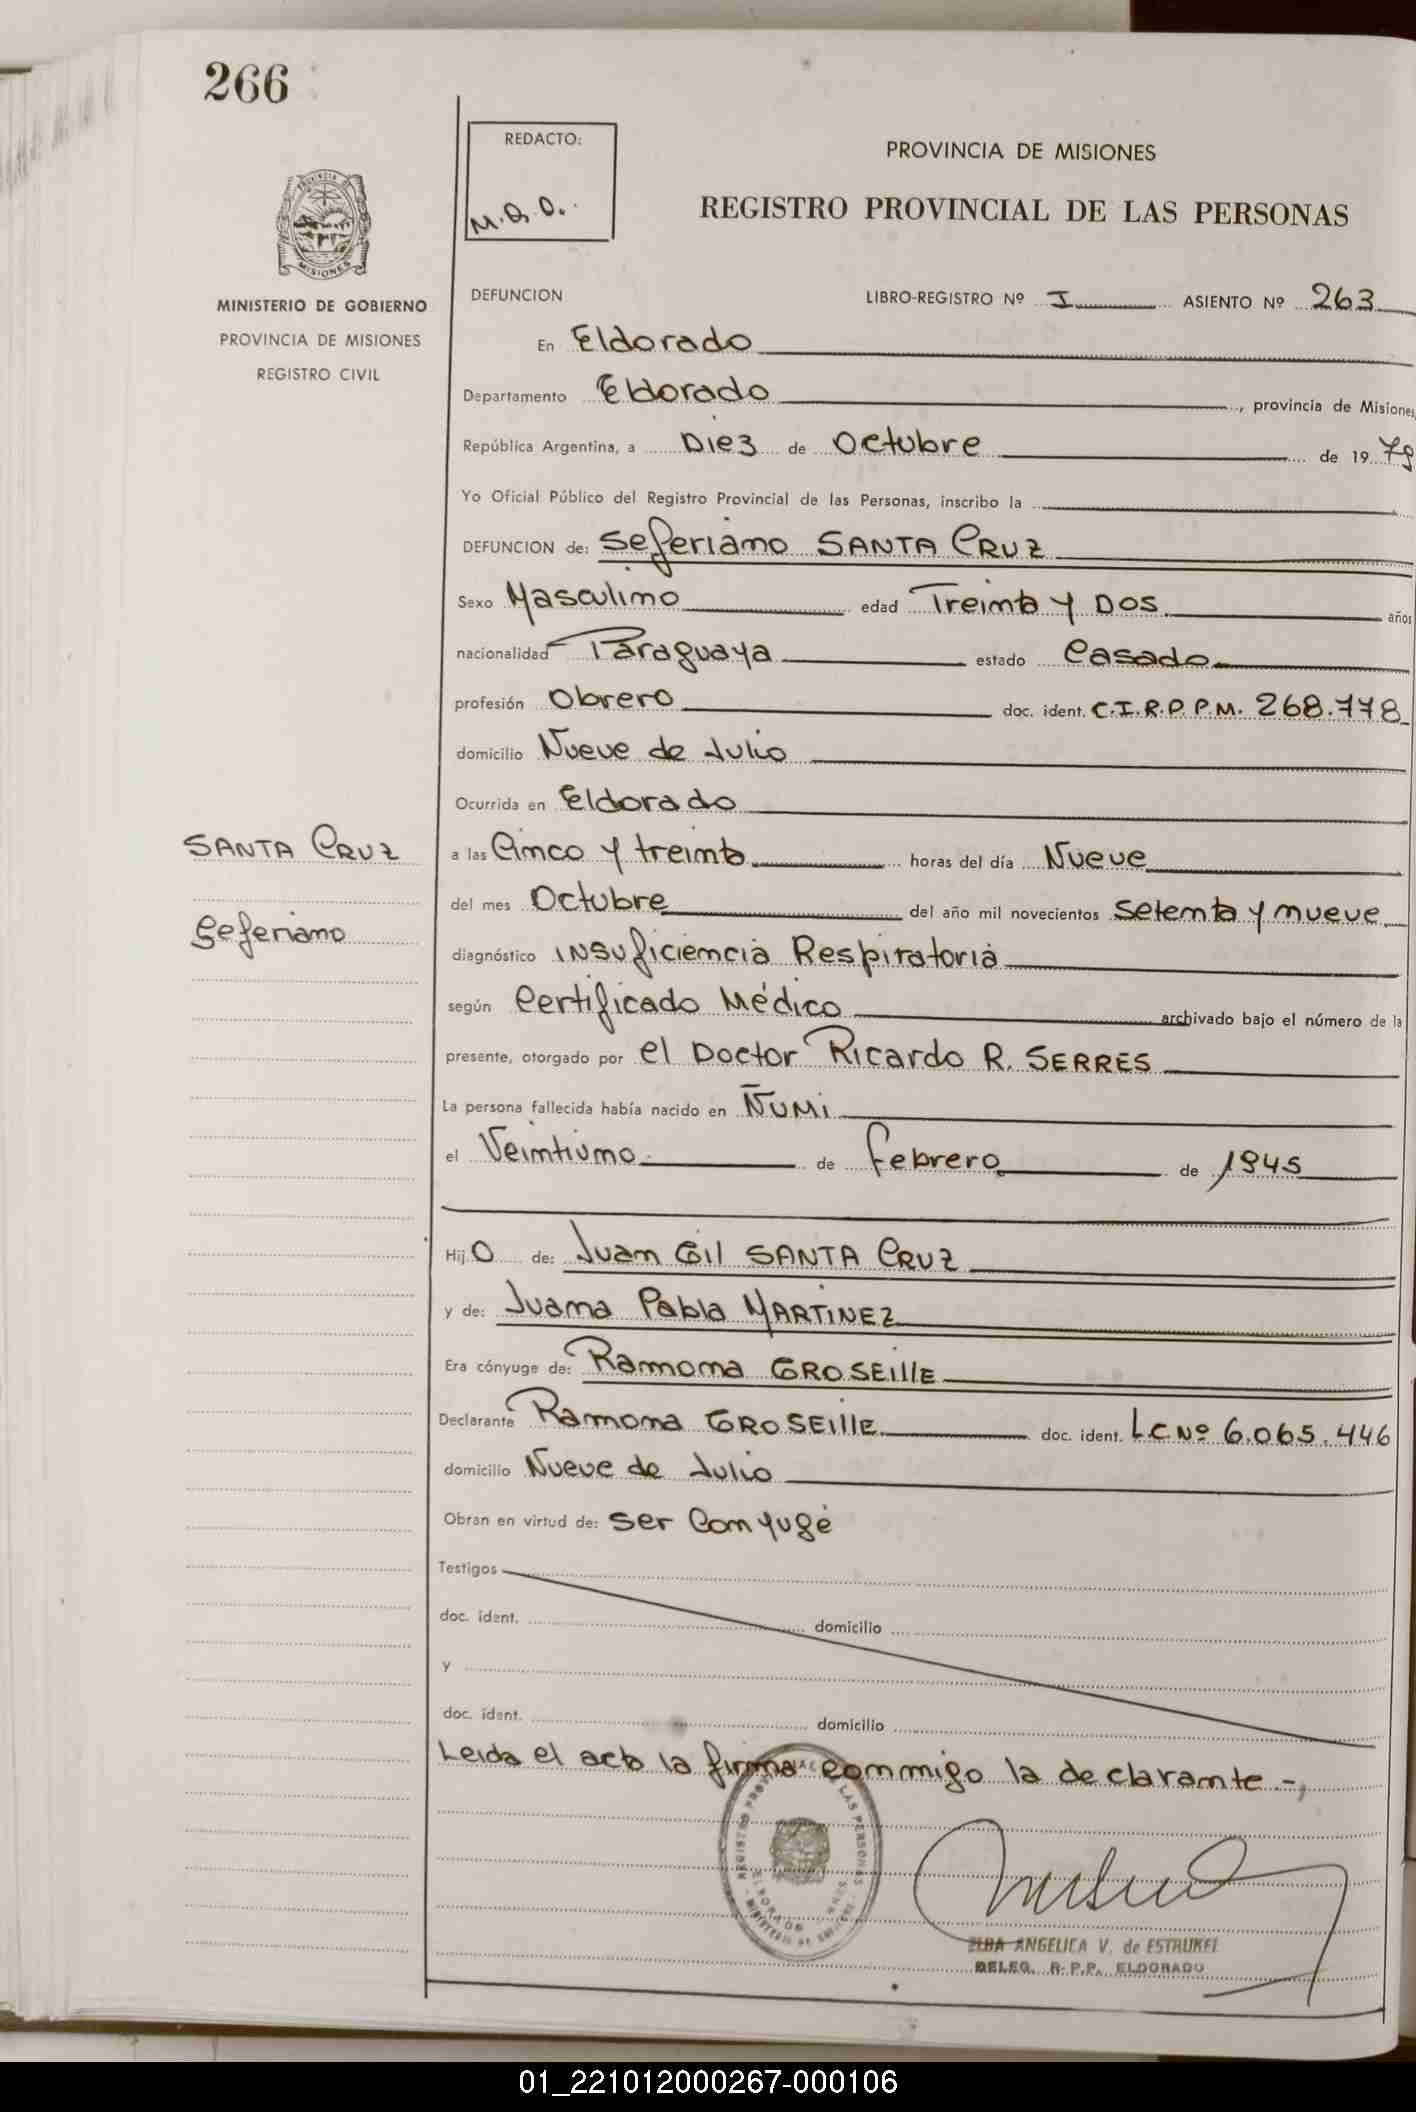 266
REDACTO:
M.Q.O.
PROVINCIA DE MISIONES
REGISTRO PROVINCIAL DE LAS PERSONAS
MINISTERIO DE GOBIERNO
PROVINCIA DE MISIONES
REGISTRO CIVIL
DEFUNCION LIBRO-REGISTRO Nº I ASIENTO Nº 263
En Eldorado
Departamento Eldorado, provincia de Misiones,
República Argentina, a Diez de Octubre de 1979
Yo Oficial Público del Registro Provincial de las Personas, inscribo la
DEFUNCION de: Seferiano SANTA CRUZ
Sexo Masculino edad Treinta y Dos años
nacionalidad Paraguaya estado Casado
profesión Obrero doc. ident. C.I.R.P.P.M. 268.778
domicilio Nueve de Julio
Ocurrida en Eldorado
SANTA CRUZ
Seferiano
a las Cinco y treinta horas del día Nueve
del mes Octubre del año mil novecientos setenta y nueve
diagnóstico INSuficiencia Respiratoria
según Certificado Médico archivado bajo el número de la
presente, otorgado por el Doctor Ricardo R. SERRES
La persona fallecida había nacido en Ñumi
el Veintiuno de febrero de 1945
Hijo de: Juan Gil SANTA CRUZ
y de: Juana Pabla MARTINEZ
Era cónyuge de: Ramona GROSEILLE
Declarante Ramona GROSEILLE doc. ident. L.C Nº 6.065.446
domicilio Nueve de Julio
Obran en virtud de: ser Conyuge
Testigos
doc. ident. domicilio
y
doc. ident. domicilio
Leida el acta la firma conmigo la declarante -,
REGISTRO PROVINCIAL DE LAS PERSONAS
ELDORADO
MINISTERIO DE GOBIERNO
ELBA ANGELICA V. de ESTRUKEL
DELEG. R.P.P. ELDORADO
01_221012000267-000106